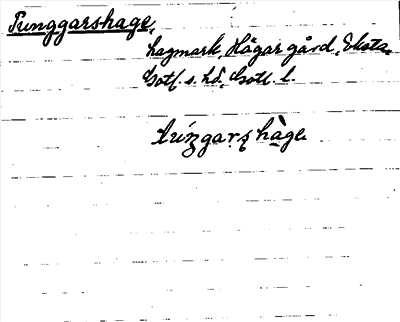 Punggarshage,
hagmark, Hägar gård, Eksta,
Gotl. s. hd, Gotl. l.
hage